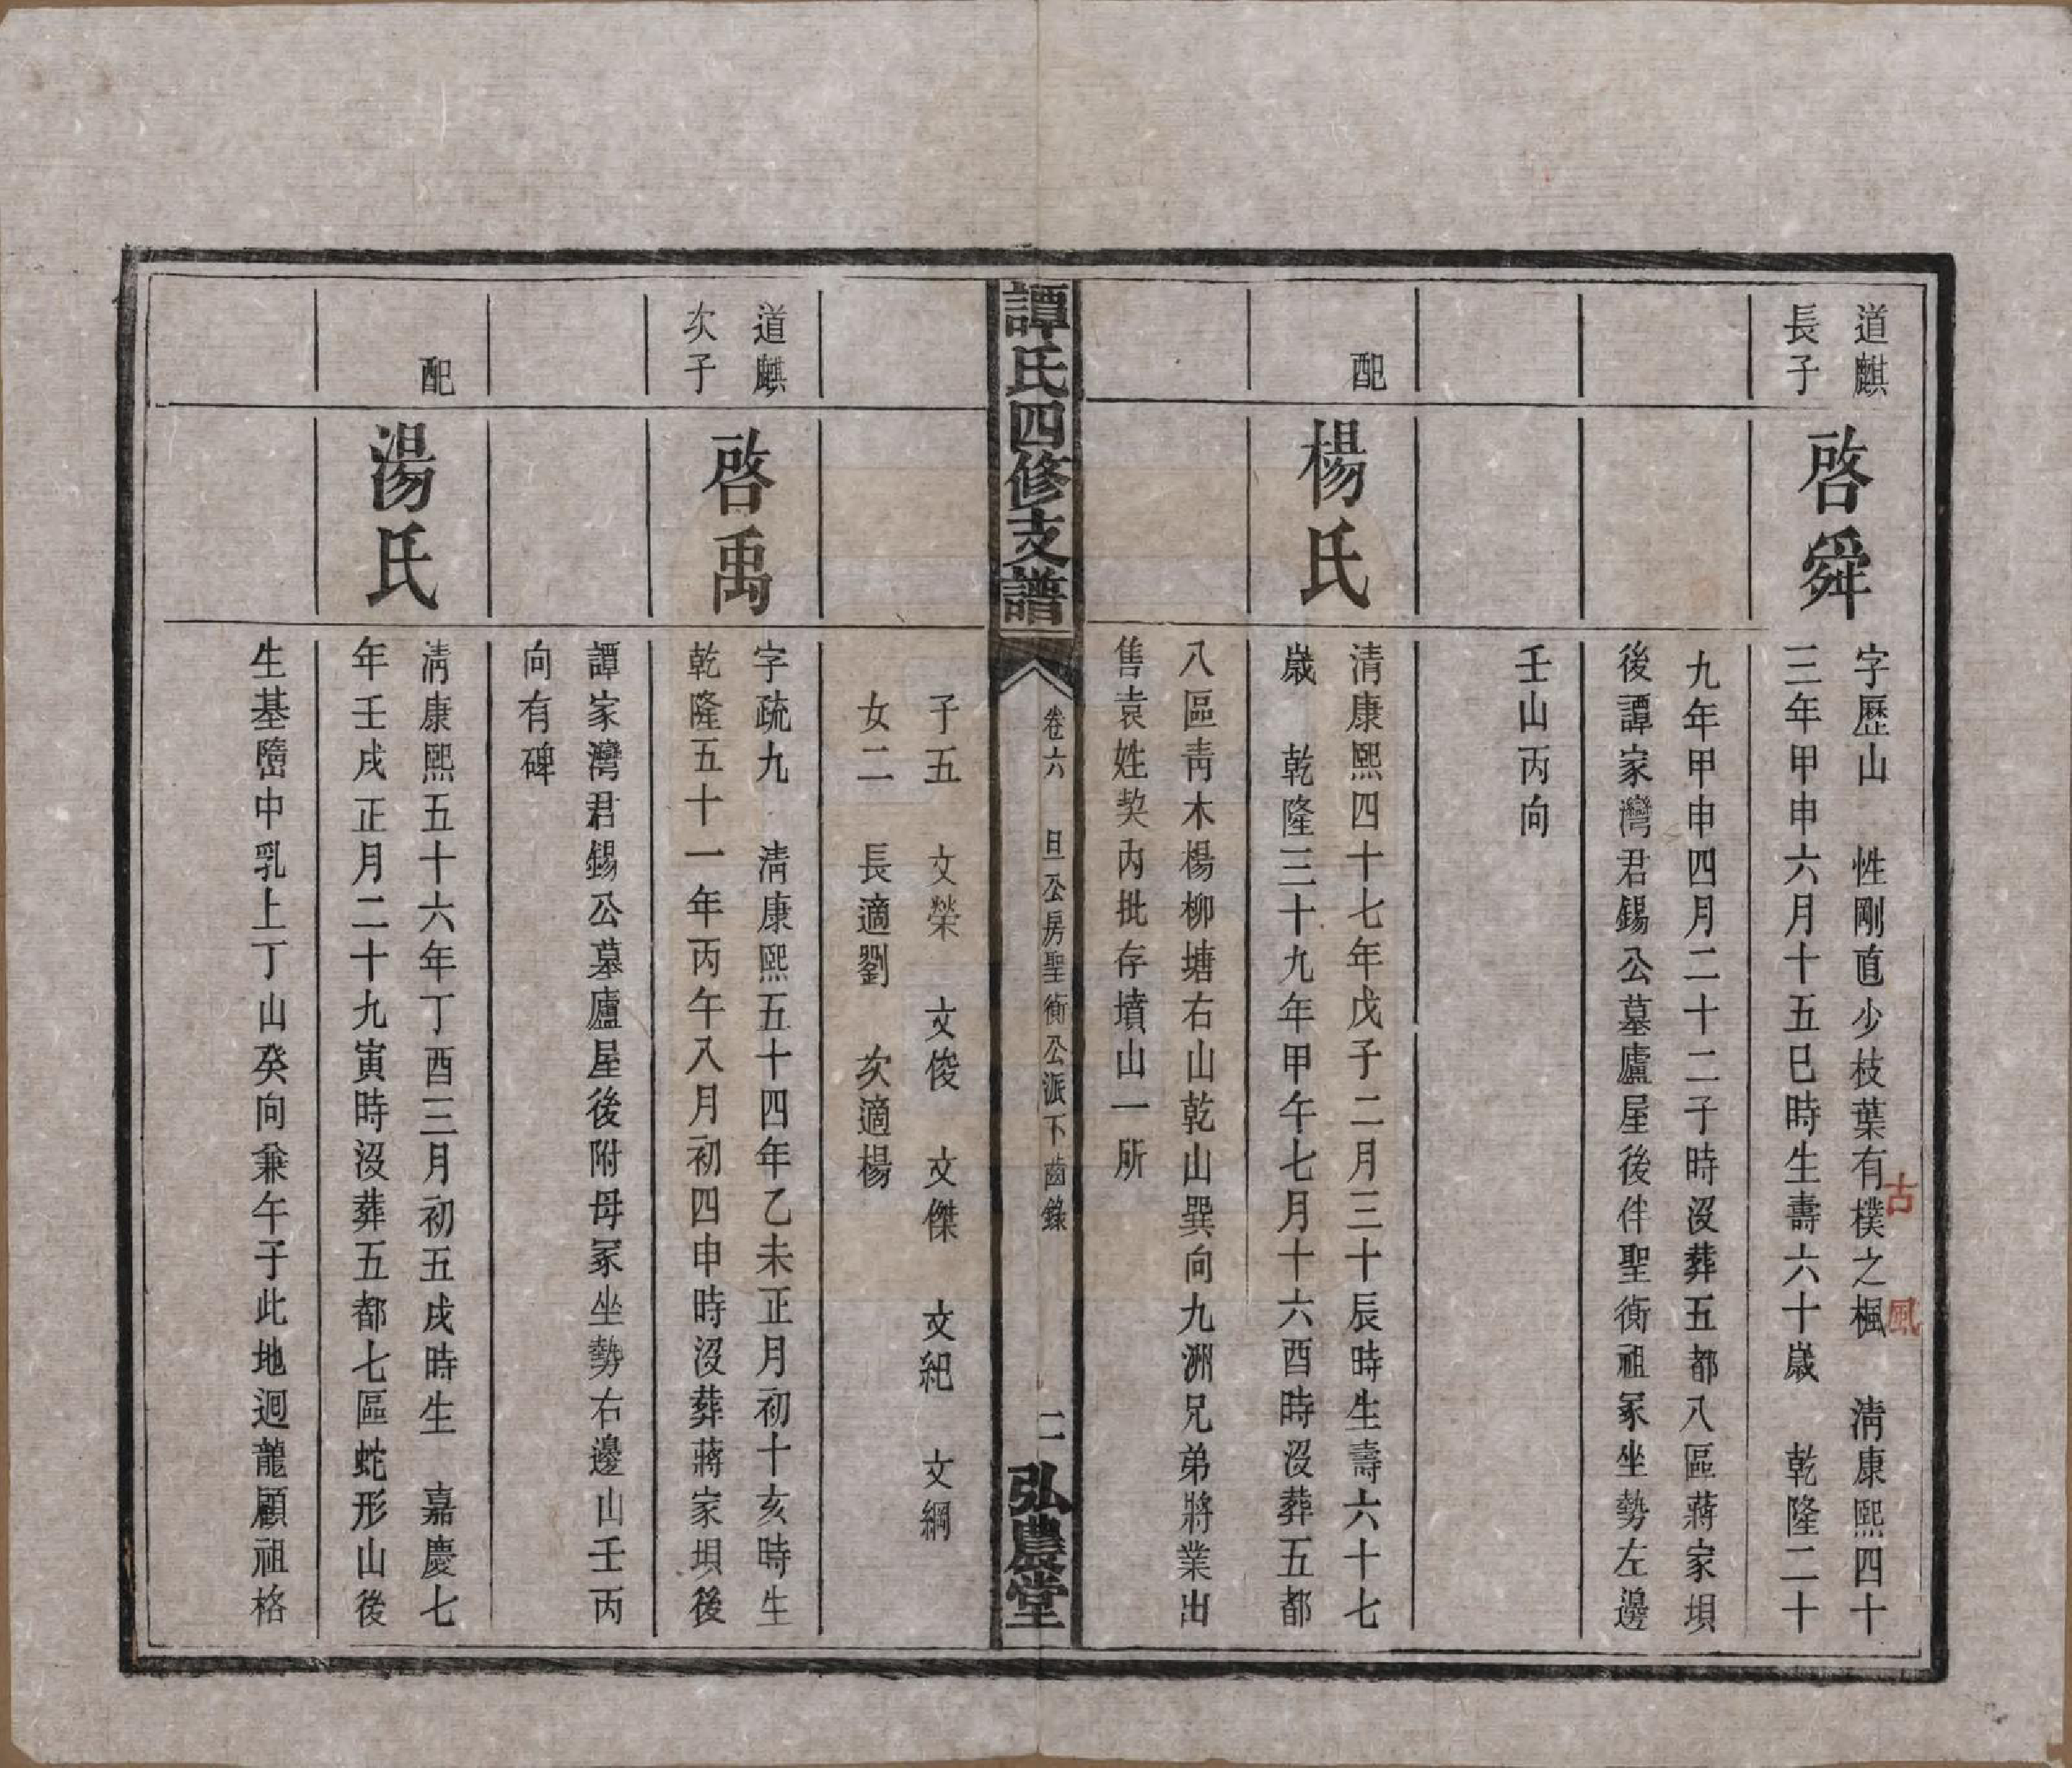 道麒
長子
啓舜
字歷山　性剛直少枝葉有樸之楓　清康熙四十
古風
三年甲申六月十五巳時生壽六十歲　乾隆二十
九年甲申四月二十二子時沒葬五都八區蔣家垻
後譚家灣君錫公墓廬屋後伴聖衡祖冢坐勢左邊
壬山丙向
配
楊氏
清康熙四十七年戊子二月三十辰時生壽六十七
歲　乾隆三十九年甲午七月十六酉時沒葬五都
八區靑木楊柳塘右山乾山巽向九洲兄弟將業出
售袁姓契內批存墳山一所
譚氏四修支譜
卷六　旦公房聖衡公派下齒錄
二
弘農堂
子五　文榮　文俊　文傑　文紀　文綱
女二　長適劉　次適楊
道麒
次子
啓禹
字疏九　清康熙五十四年乙未正月初十亥時生
乾隆五十一年丙午八月初四申時沒葬蔣家垻後
譚家灣君錫公墓廬屋後附母冢坐勢右邊山壬丙
向有碑
配
湯氏
清康熙五十六年丁酉三月初五戌時生　嘉慶七
年壬戌正月二十九寅時沒葬五都七區蛇形山後
生基墮中乳上丁山癸向兼午子此地迴龍顧祖格